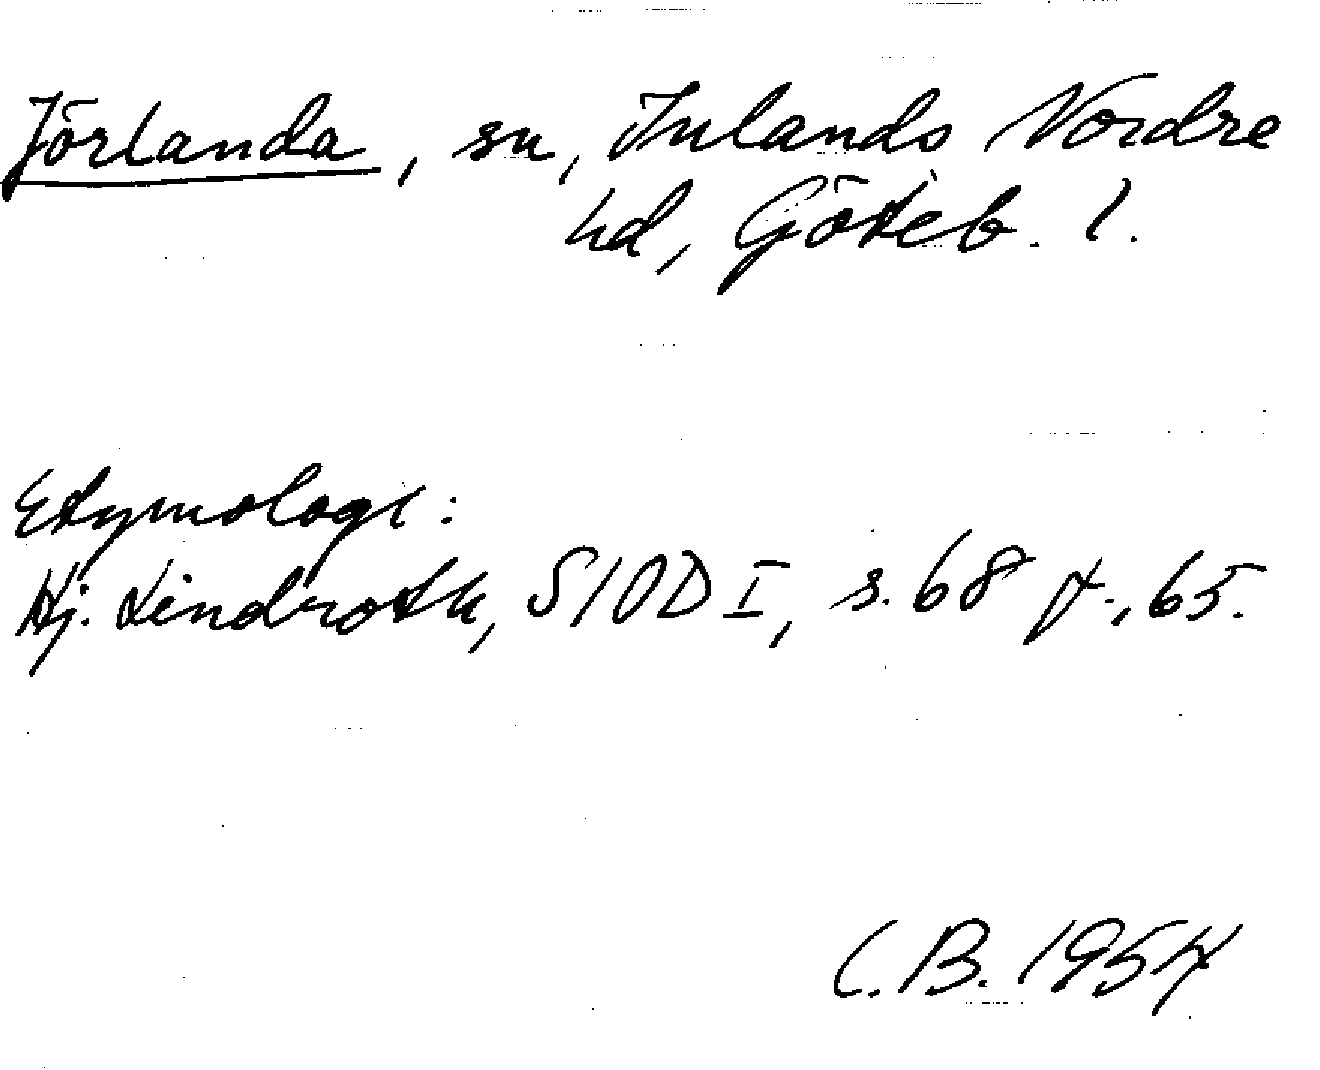 Jörlanda, sn, Inlands Nordre
hd, Göteb. l.
Etymologi:
Hj. Lindroth, SIOD I, s. 68 f., 65.
C.B. 1954